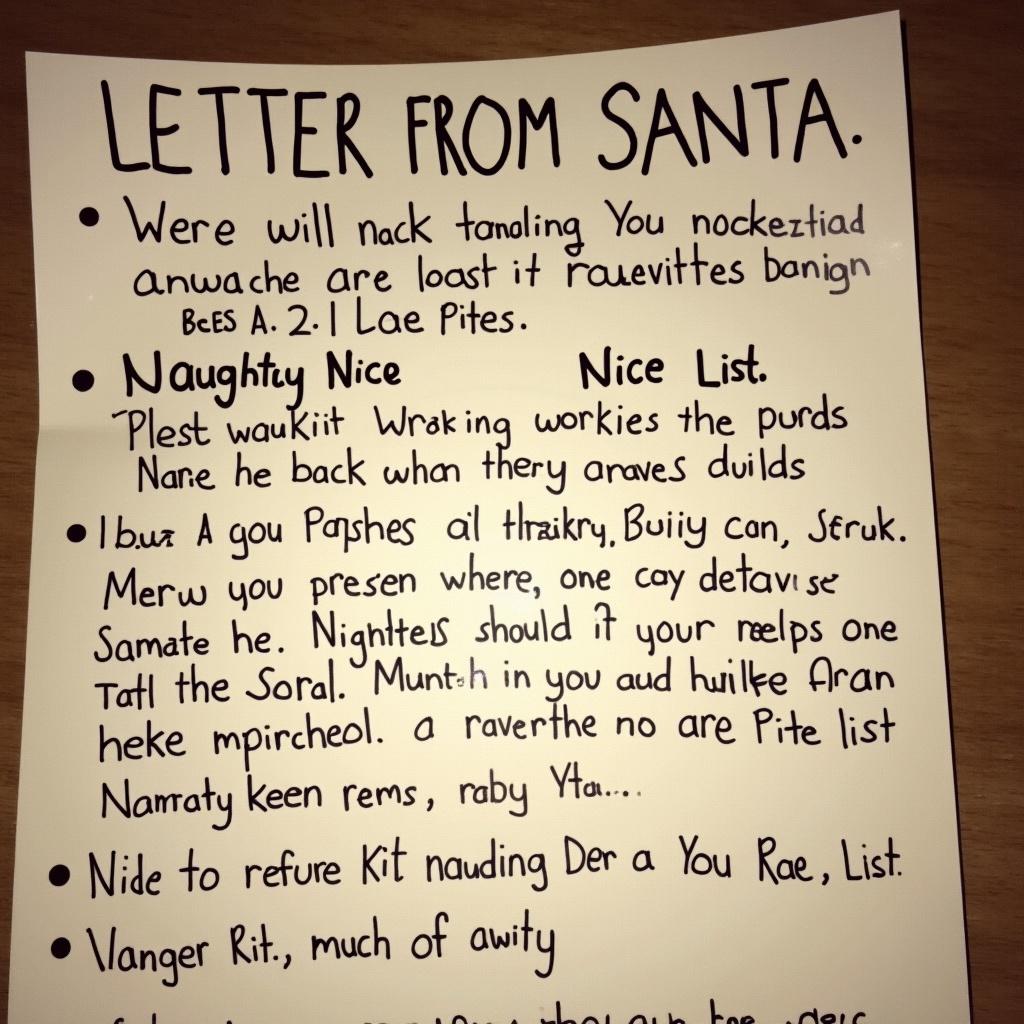 LETTER FROM SANTA.
• Were will nack tanoling You nockeztiad
anwache are loast it rauevittes banign
BcES A. 2. I Lae Pites.
• Naughtty Nice Nice List.
Plest waukiit Wrak ing workies the purds
Nane he back whan thery anaves duilds
• I buz A gou Papshes ail thraikry, Buiiy can, Struk.
Merw you presen where, one cay detavise
Samate he. Nighttels should it your reelps one
Tatl the Soral. Munt-h in you aud huilke Aran
heke mpircheol. a raverthe no are Pite list
Namraty keen rems, raby Yta....
• Nide to refure Kit nauding Der a You Rae, List.
• Vanger Rit., much of awity